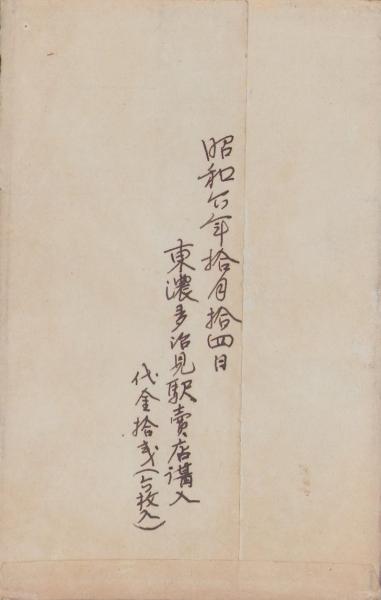 昭和六年拾月拾四日
東濃多治見駅賣店購入
代金拾弐(六枚入)